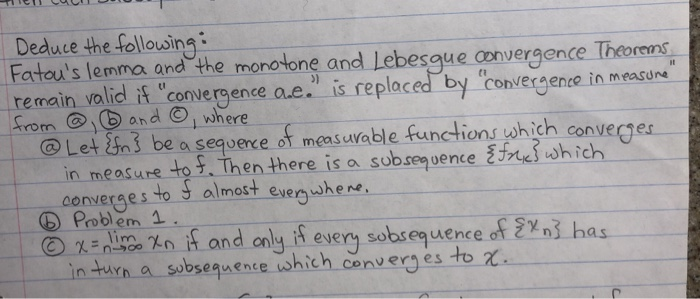 Deduce the following:
Fatou's lemma and the monotone and Lebesgue convergence Theorems
remain valid if "convergence a.e." is replaced by "convergence in measure"
from ⓐ, ⓑ and ⓒ, where
ⓐ Let {fn} be a sequence of measurable functions which converges
in measure to f. Then there is a subsequence {fnk} which
converges to f almost everywhere.
ⓑ Problem 1.
ⓒ x = lim n→∞ xn if and only if every subsequence of {xn} has
in turn a subsequence which converges to x.